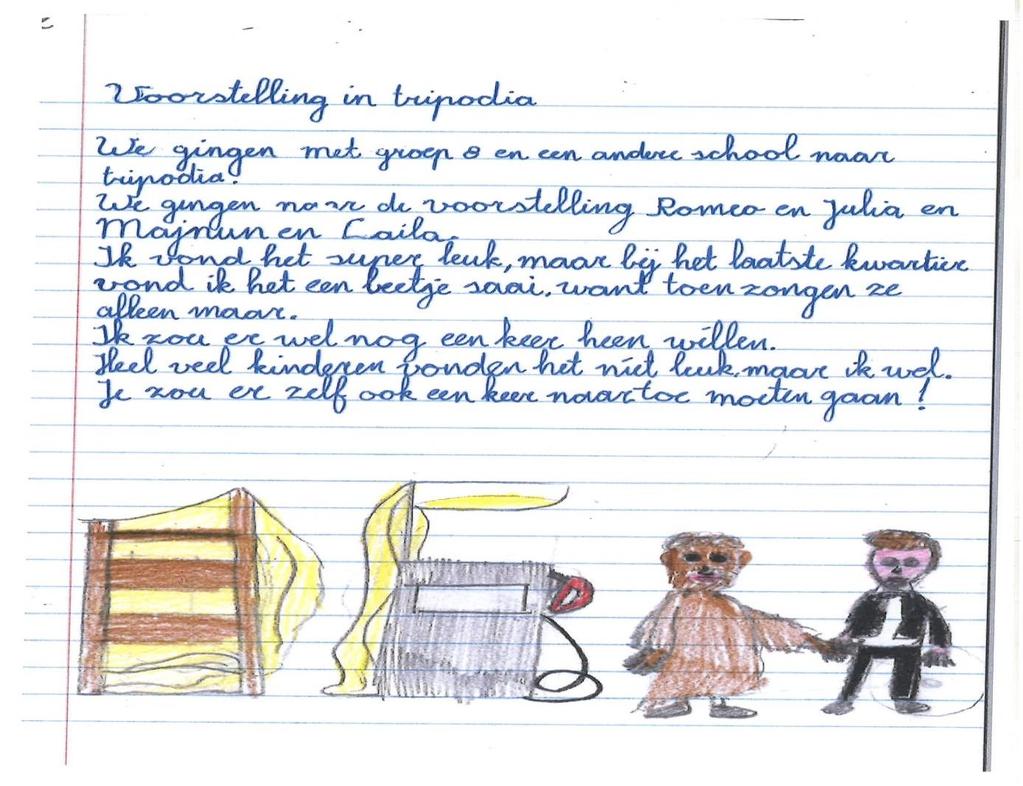 Voorstelling in tripodia
We gingen met groep 8 en een andere school naar
tripodia.
We gingen naar de voorstelling Romeo en Julia en
Majnun en Laila.
Ik vond het super leuk, maar bij het laatste kwartier
vond ik het een beetje saai. want toen zongen ze
alleen maar.
Ik zou er wel nog een keer heen willen.
Heel veel kinderen vonden het niet leuk. maar ik wel.
Je zou er zelf ook een keer naartoe moeten gaan!